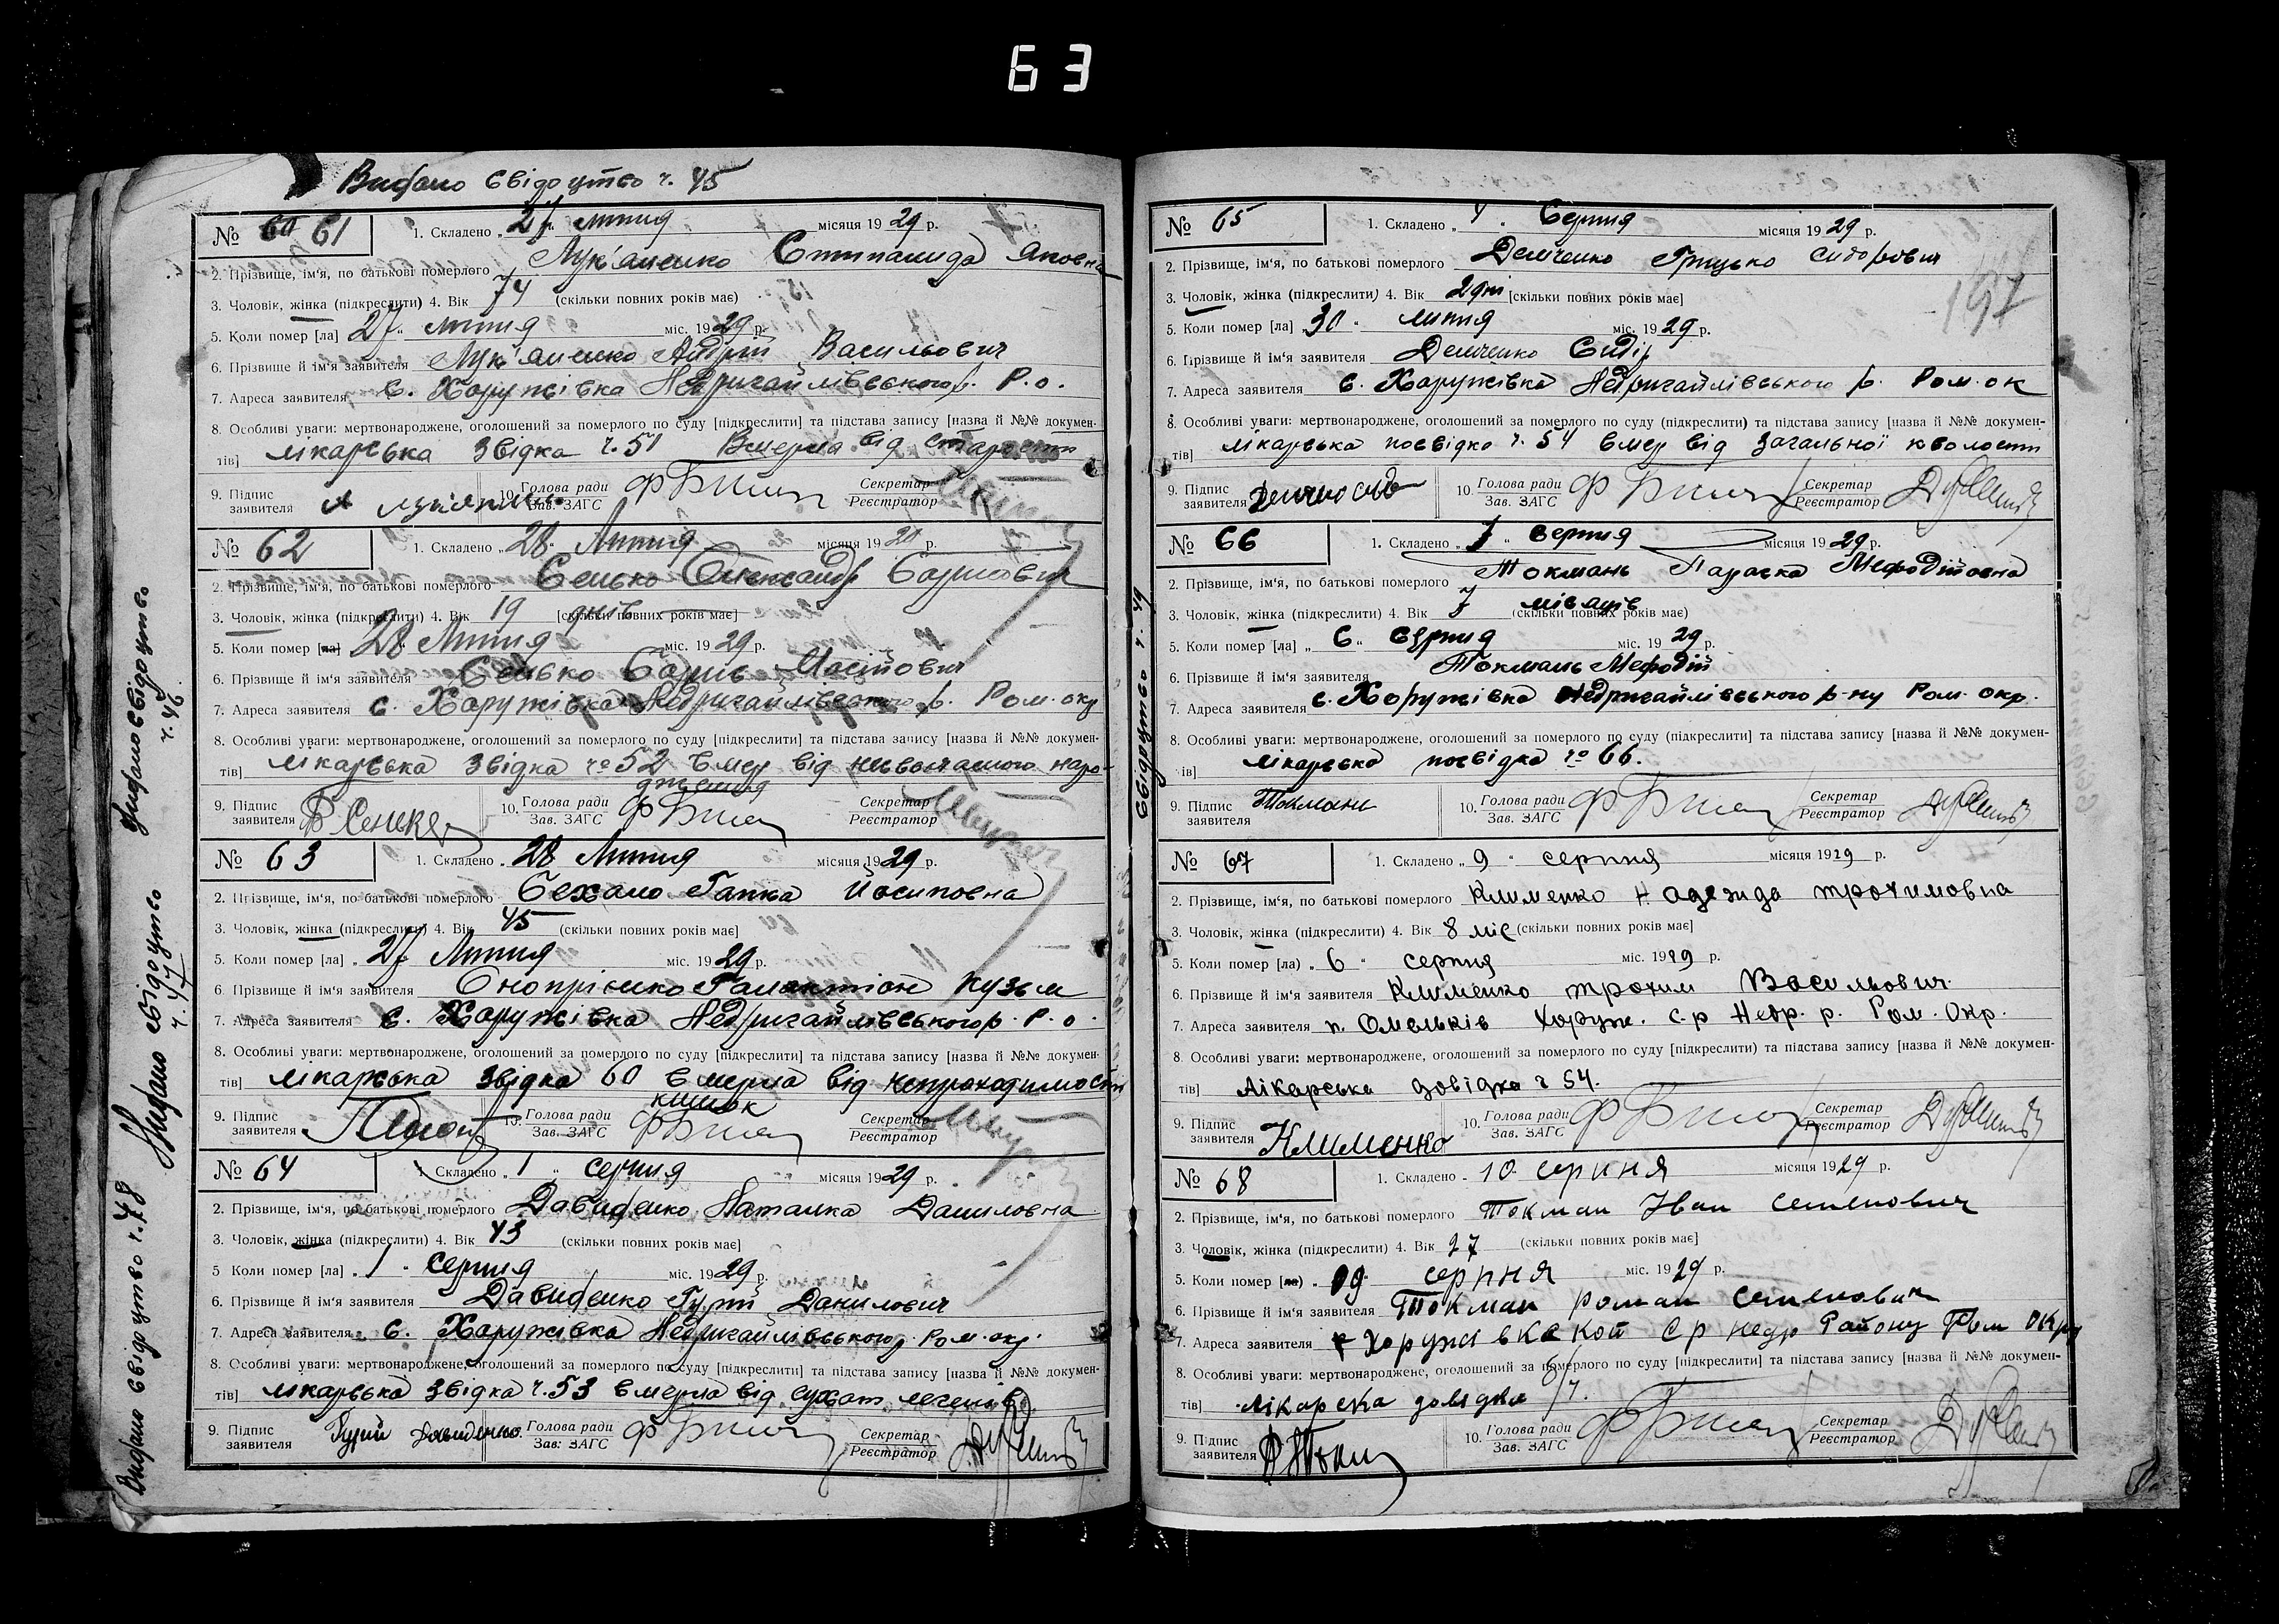 63
Видано свідоцтво ч. 45
№ 60 61
1. Складено „27“ липня місяця 1929 р.
2. Прізвище, ім'я, по батькові померлого Лук'яненко Степанида Яковна
3. Чоловік, жінка (підкреслити) 4. Вік 74 (скільки повних років має)
5. Коли помер [ла] 27 „ липня міс. 1929 р.
6. Прізвище й ім'я заявителя Лук'яненко Андрій Васильович
7. Адреса заявителя с. Хоружівка Недригайлівського р. Р.о.
8. Особливі уваги: мертвонароджене, оголошений за померлого по суду [підкреслити] та підстава запису [назва й №№ докумен-
тів] лікарська звідка ч. 51 Вмерла від старости
9. Підпис заявителя А 10. Голова ради Зав. ЗАГС Секретар Реєстратор
№ 62
1. Складено „28“ Липня місяця 19 р.
2. Прізвище, ім'я, по батькові померлого Сенько Олександр Борисович
3. Чоловік, жінка (підкреслити) 4. Вік 19 днів [скільки повних років має]
5. Коли помер [ла] 28 Липня міс. 1929 р.
6. Прізвище й ім'я заявителя Сенько Борис
7. Адреса заявителя с. Хоружівка Недригайлівського р. Ром. окр
8. Особливі уваги: мертвонароджене, оголошений за померлого по суду [підкреслити] та підстава запису [назва й №№ докумен-
тів] лікарська звідка № 52 вмер від несвоєчасного наро-
дження
9. Підпис заявителя Б Сенько 10. Голова ради Зав. ЗАГС Секретар Реєстратор
№ 63
1. Складено „28 Липня місяця 1929 р.
2. Прізвище, ім'я, по батькові померлого Гапка Йосиповна
3. Чоловік, жінка (підкреслити) 4. Вік 45 (скільки повних років має]
5. Коли помер [ла] „27 Липня міс. 1929 р.
6. Прізвище й ім'я заявителя Онопрієнко Галактіон Кузьм
7. Адреса заявителя с. Хоружівка Недригайлівського р. Р. о.
8. Особливі уваги: мертвонароджене, оголошений за померлого по суду [підкреслити] та підстава запису [назва й №№ докумен-
тів] лікарська звідка 60 вмерла від непроходимости
кишок
9. Підпис заявителя 10. Голова ради Зав. ЗАГС Секретар Реєстратор
№ 64
1. Складено „1“ серпня місяця 1929 р.
2. Прізвище, ім'я, по батькові померлого Давиденко Наталка Даниловна
3. Чоловік, жінка (підкреслити) 4. Вік 43 (скільки повних років має]
5 Коли помер [ла] „1“ серпня міс. 1929 р.
6. Прізвище й ім'я заявителя Давиденко Гурій Данилович
7. Адреса заявителя с. Хоружівка Недригайлівського р. Ром. окр.
8. Особливі уваги: мертвонароджене, оголошений за померлого по суду [підкреслити] та підстава запису [назва й №№ докумен-
тів] лікарська звідка ч. 53 вмерла від сухот легенів
9. Підпис заявителя Гурій Давиденко 10. Голова ради Зав. ЗАГС Секретар Реєстратор
Видано свідоцтво ч. 46.
Видано свідоцтво ч. 47
Видано свідоцтво ч. 48
№ 65
1. Складено „4“ Серпня місяця 1929 р.
2. Прізвище, ім'я, по батькові померлого Демченко Грицько Сидорович
3. Чоловік, жінка (підкреслити) 4. Вік 2 дні [скільки повних років має]
5. Коли помер [ла] „30“ липня міс. 1929 р.
6. Прізвище й ім'я заявителя Демченко Сидір
7. Адреса заявителя с. Хоружівка Недригайлівського р. Ром. ок
8. Особливі уваги: мертвонароджене, оголошений за померлого по суду (підкреслити) та підстава запису [назва й №№ докумен-
тів] лікарська посвідка ч. 54 вмер від загальної кволости
9. Підпис заявителя 10. Голова ради Зав. ЗАГС Секретар Реєстратор
Свідоцтво ч. 49
№ 66
1. Складено „7“ серпня місяця 1929 р.
2. Прізвище, ім'я, по батькові померлого Токмань Параска Мефодіївна
3. Чоловік, жінка (підкреслити) 4. Вік 7 місяців (скільки повних років має)
5. Коли помер [ла] „6“ серпня міс. 1929 р.
6. Прізвище й ім'я заявителя Токмань Мефодій
7. Адреса заявителя с. Хоружівка Недригайлівського р-ну Ром. окр.
8. Особливі уваги: мертвонароджене, оголошений за померлого по суду (підкреслити] та підстава запису [назва й №№ докумен-
ів] лікарська посвідка № 66.
9. Підпис заявителя Токмань 10. Голова ради Зав. ЗАГС Секретар Реєстратор
№ 67
1. Складено „9“ серпня місяця 1929 р.
2. Прізвище, ім'я, по батькові померлого Клименко Надежда Трохимовна
3. Чоловік, жінка (підкреслити) 4. Вік 8 міс (скільки повних років має]
5. Коли помер [ла) „6“ серпня міс. 1929 р.
6. Прізвище й ім'я заявителя Клименко Трохим Васильович
7. Адреса заявителя п. Омельків Хоруж. с.р Недр. р. Ром. Окр.
8. Особливі уваги: мертвонароджене, оголошений за померлого по суду [підкреслити) та підстава запису [назва й №№ докумен-
тів] Лікарська довідка ч 54.
9. Підпис заявителя Клименко 10. Голова ради Зав. ЗАГС Секретар Реєстратор
№ 68
1. Складено „10 серпня місяця 1929 р.
2. Прізвище, ім'я, по батькові померлого Токман Іван Семенович
3. Чоловік, жінка (підкреслити) 4. Вік 27 (скільки повних років має]
5. Коли помер [ла) „09 серпня міс. 1929 р.
6. Прізвище й ім'я заявителя Токман Роман Семенович
7. Адреса заявителя Хоружівкской С р Недр Району Ром Окр
8. Особливі уваги: мертвонароджене, оголошений за померлого по суду [підкреслити] та підстава запису [назва й №№ докумен-
тів] лікарска довідка
9. Підпис заявителя 10. Голова ради Зав. ЗАГС Секретар Реєстратор